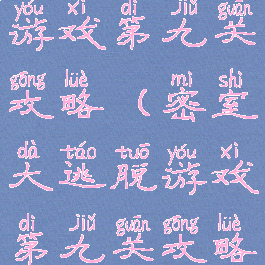 yóu xì dì jiǔ guān
游戏第九关
gōng lüè mì shì
攻略（密室
dà táo tuō yóu xì
大逃脱游戏
dì jiǔ guān gōng lüè
第九关攻略